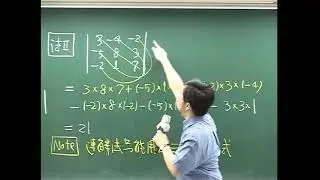 法II
3 -4 -2
-5 8 3
-2 1 7
= 3×8×7+(-5)×1 ×3×(-4)
-(-2)×8×(-2)-(-5)× -3×3×1
= 21
Note 連解法 能用 式